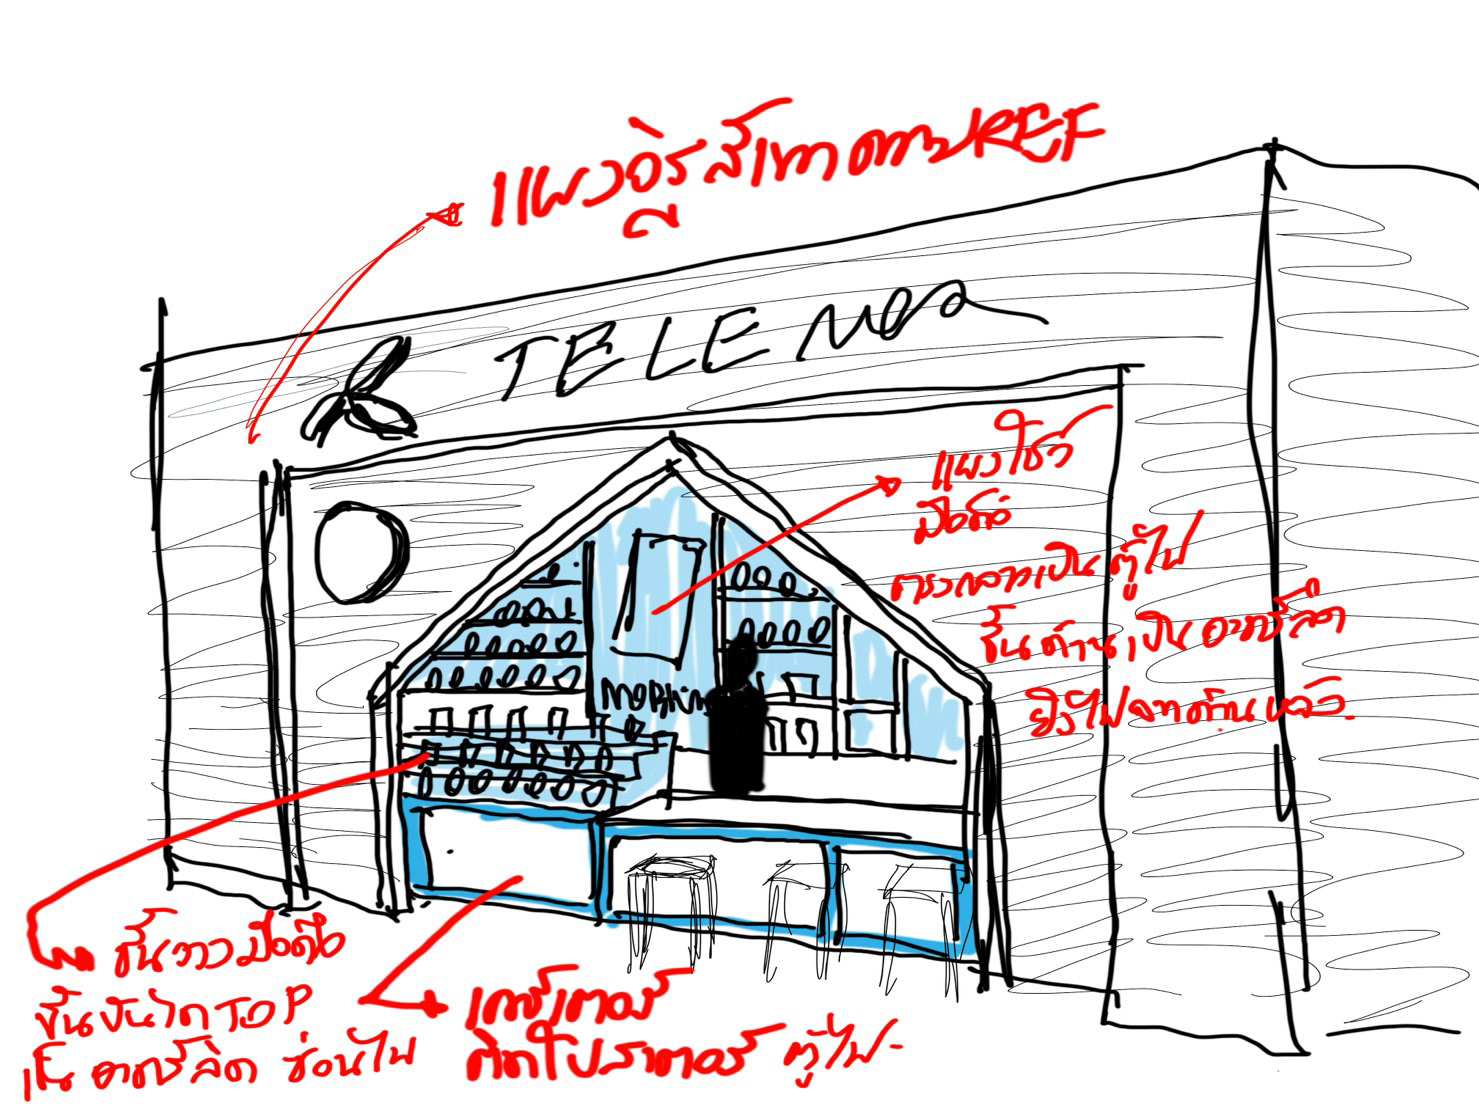 แผงจีรูสีเทาตามREF
TELE
แผงโชว์
มือถือ
ตรงกลางเป็นตู้ไฟ
ชั้นด้านเป็นอาคริลิค
ยิงไฟจากด้านหลัง.
ชั้นวางมือถือ
ขั้นบันไดTOP
เป็น อาคริลิค ซ่อนไฟ
เคาร์เตอร์
ติดโปสเตอร์ ตู้ไฟ-